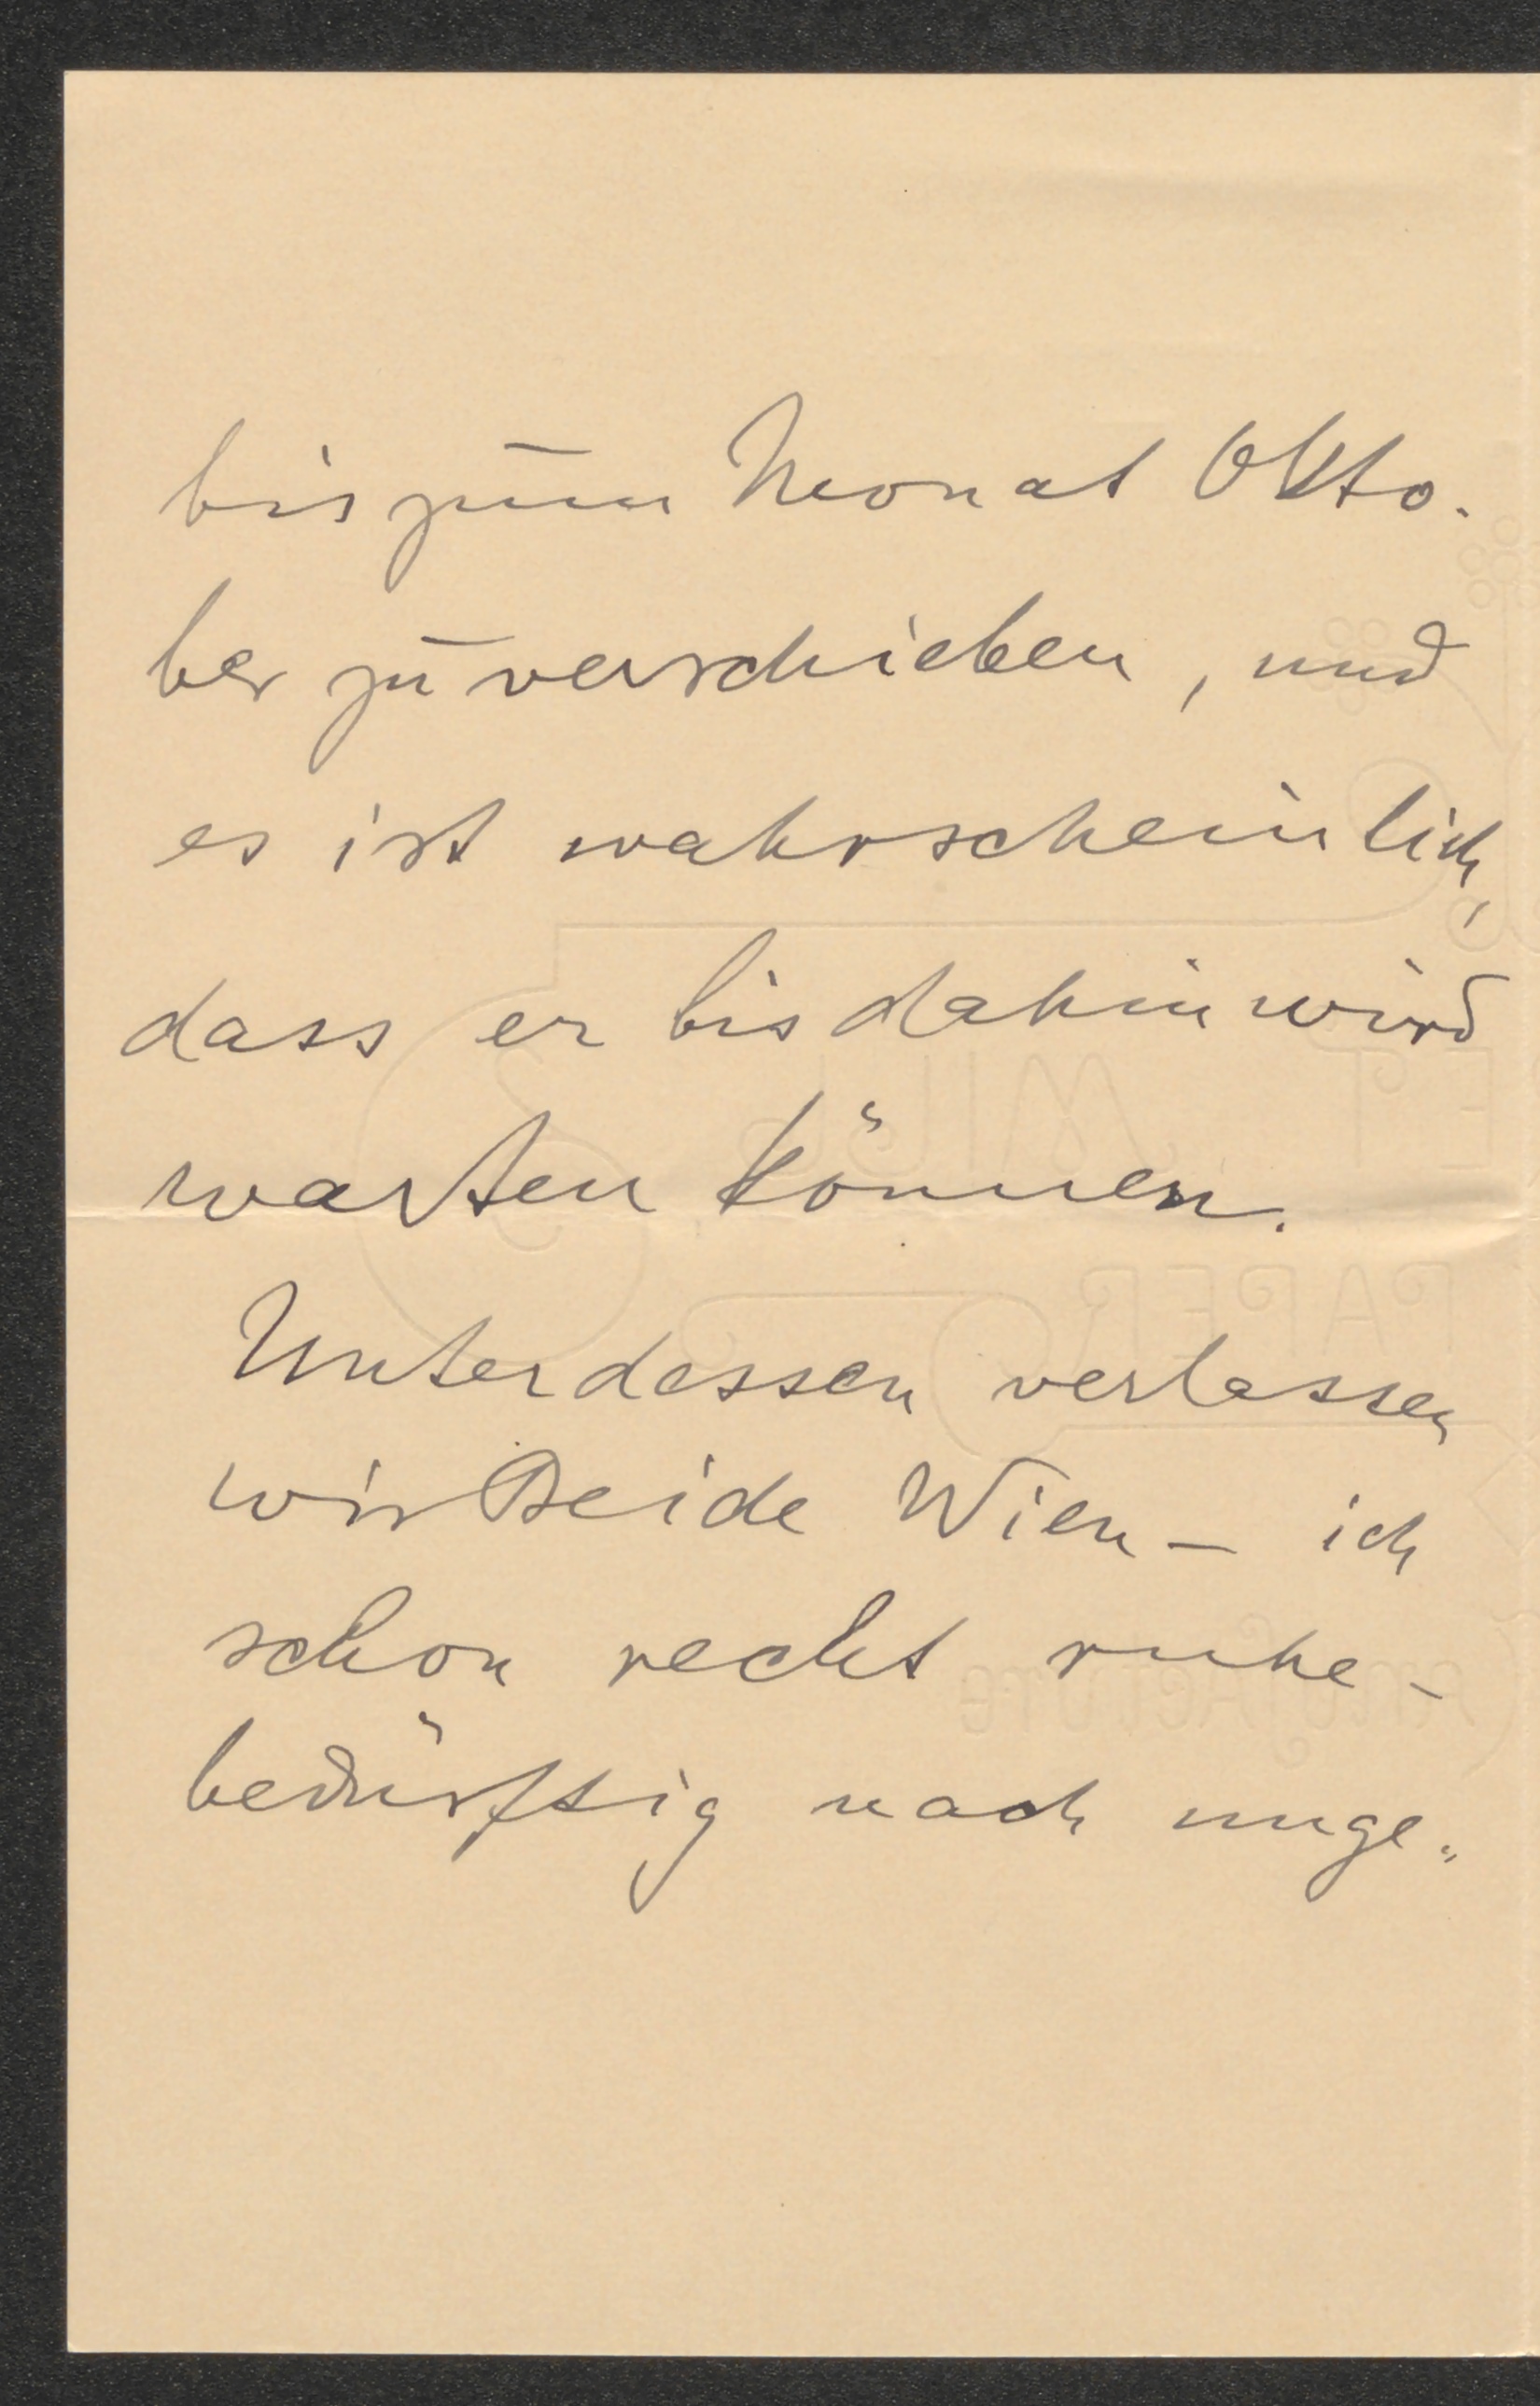 bis zum Monat Okto-
ber zu verschieben, und
es ist wahrscheinlich,
dass er bis dahin wird
warten können.
Unterdessen verlassen
wir Beide Wien – ich
schon recht ruhe-
bedürftig nach unge-